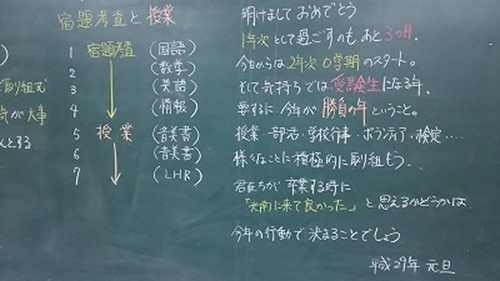 宿題考査と授業
1 宿題考査 (国語)
2 (数学)
3 (英語)
4 (情報)
5 授業 (音美書)
6 (音美書)
7 (LHR)
取り組む
が大事
とする
明けましておめでとう
1年次として過ごすのも、あと3か月.
今日からは2年次0学期のスタート。
そして気持ちでは受験生になる年.
要するに今年が勝負の年ということ。
授業・部活・学校行事・ボランティア・検定‥‥
様々なことに積極的に取り組もう.
君たちが卒業する時に
「大南に来て良かった」と思えるかどうかは
今年の行動で決まることでしょう
平成29年 元旦